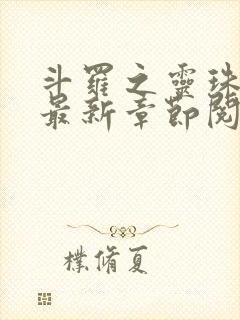 斗羅之靈珠
最新章節閱
樸脩夏